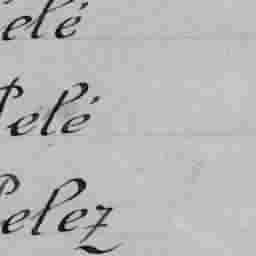 elé
Pelé
Pelez